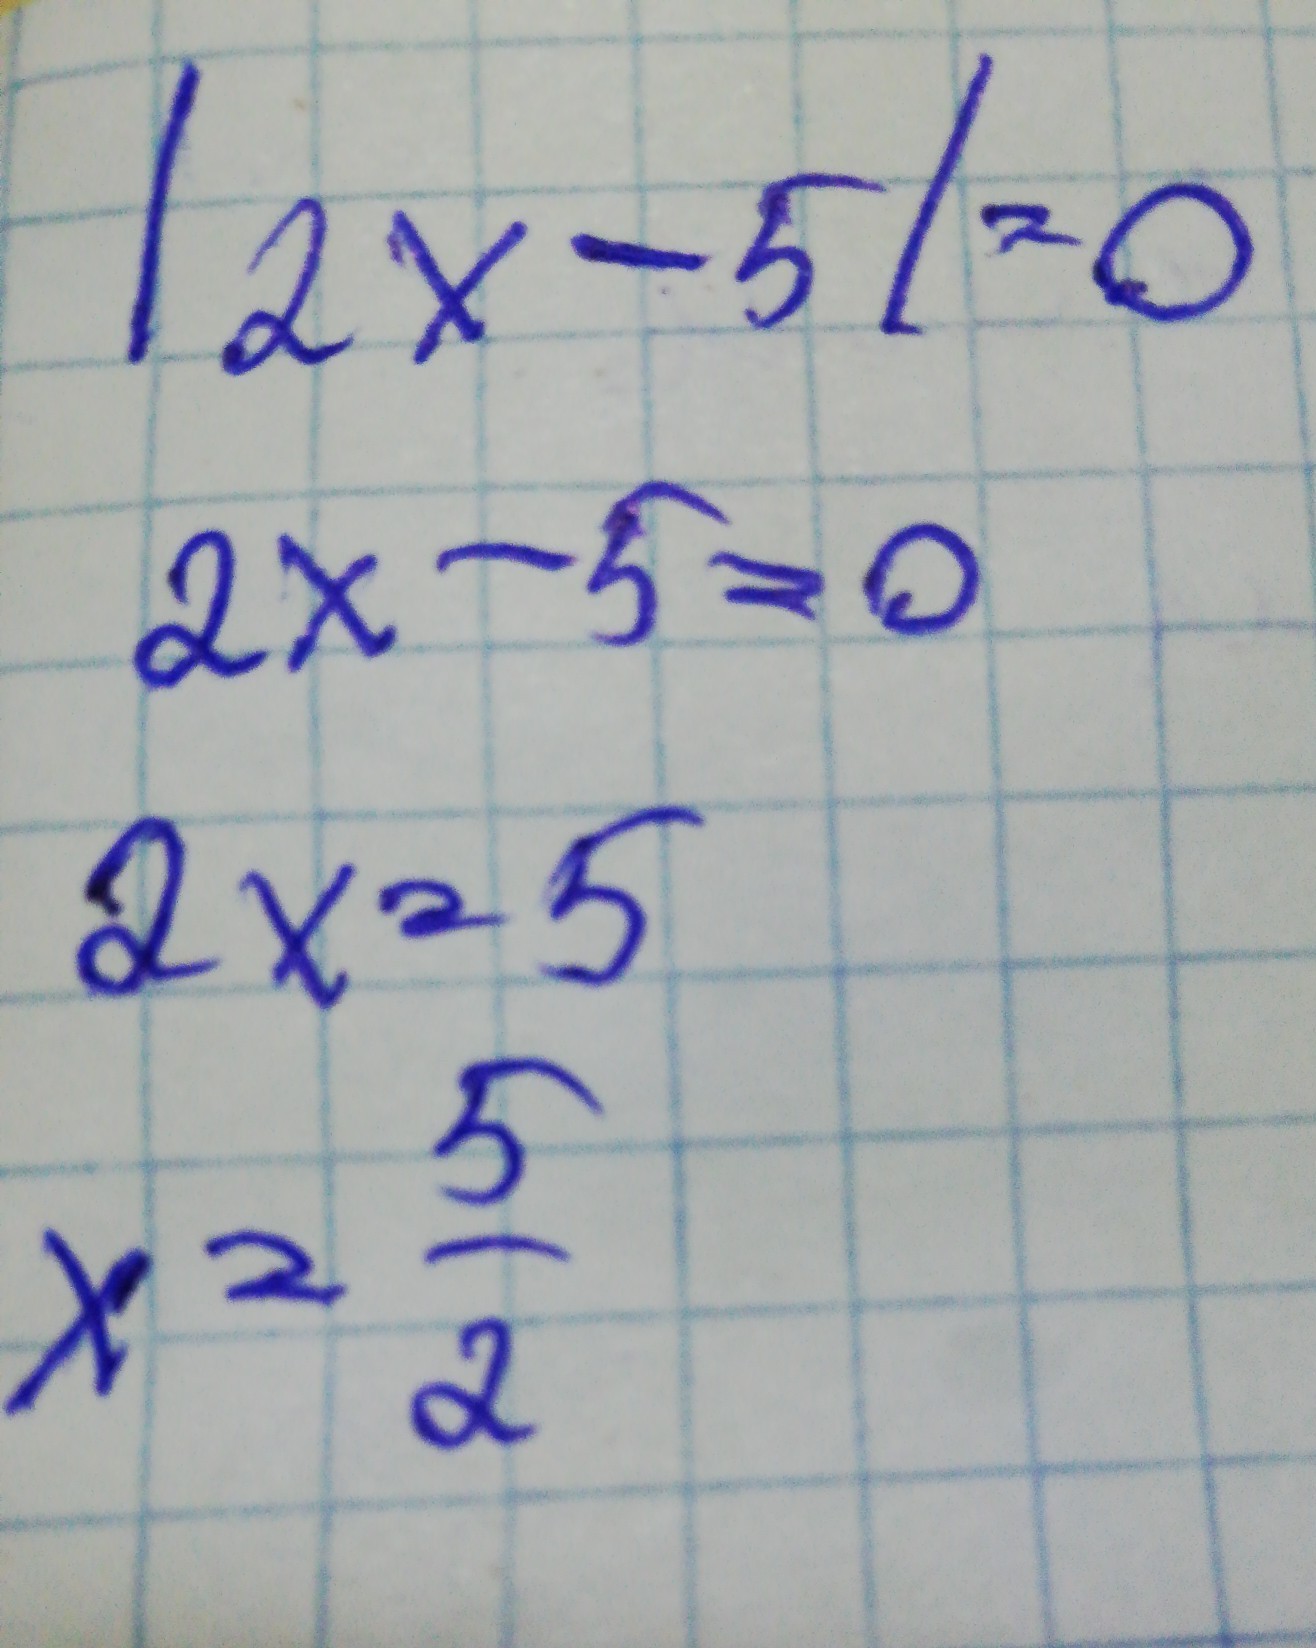 |2x-5|=0
2x-5=0
2x=5
x=5/2